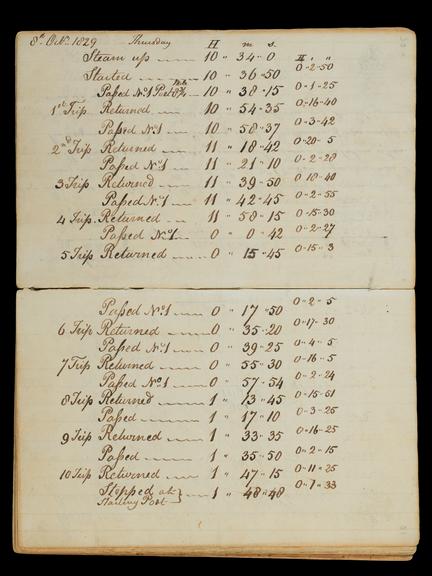 8th Octr. 1829 Thursday H m s.
Steam up 10 " 34 " 0 H " "
Started 10 " 36 " 50 0 " 2 " 50
Passed No. 1 Post 10 " 38 " 15 0 " 1 " 25
1st Trip Returned 10 " 54 " 35 0 " 16 " 40
Passed No. 1 10 " 58 " 37 0 " 3 " 42
2nd Trip Returned 11 " 18 " 42 0 " 20 " 5
Passed No. 1 11 " 21 " 10 0 " 2 " 28
3 Trip Returned 11 " 39 " 50 0 " 18 " 40
Passed No. 1 11 " 42 " 45 0 " 2 " 55
4 Trip Returned 11 " 58 " 15 0 " 15 " 30
Passed No. 1 0 " 0 " 42 0 " 2 " 27
5 Trip Returned 0 " 15 " 45 0 " 15 " 3
Passed No. 1 0 " 17 " 50 0 " 2 " 5
6 Trip Returned 0 " 35 " 20 0 " 17 " 30
Passed No. 1 0 " 39 " 25 0 " 4 " 5
7 Trip Returned 0 " 55 " 30 0 " 16 " 5
Passed No. 1 0 " 57 " 54 0 " 2 " 24
8 Trip Returned 1 " 13 " 45 0 " 15 " 51
Passed 1 " 17 " 10 0 " 3 " 25
9 Trip Returned 1 " 33 " 35 0 " 16 " 25
Passed 1 " 35 " 50 0 " 2 " 15
10 Trip Returned 1 " 47 " 15 0 " 11 " 25
Stopped at 1 " 48 " 48 0 " 1 " 33
Starting Post